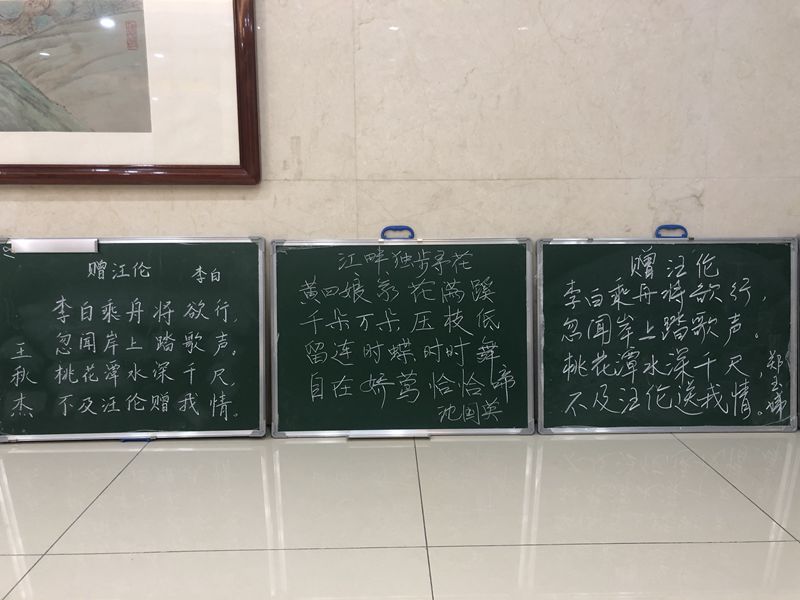 赠汪伦 李白
李白乘舟将欲行,
忽闻岸上踏歌声。
桃花潭水深千尺,
不及汪伦赠我情。
王秋杰
江畔独步寻花
黄四娘家花满蹊
千朵万朵压枝低
留连时蝶时时舞
自在娇莺恰恰啼
池国英
赠汪伦
李白乘舟将欲行,
忽闻岸上踏歌声。
桃花潭水深千尺,
不及汪伦送我情。
郑玉